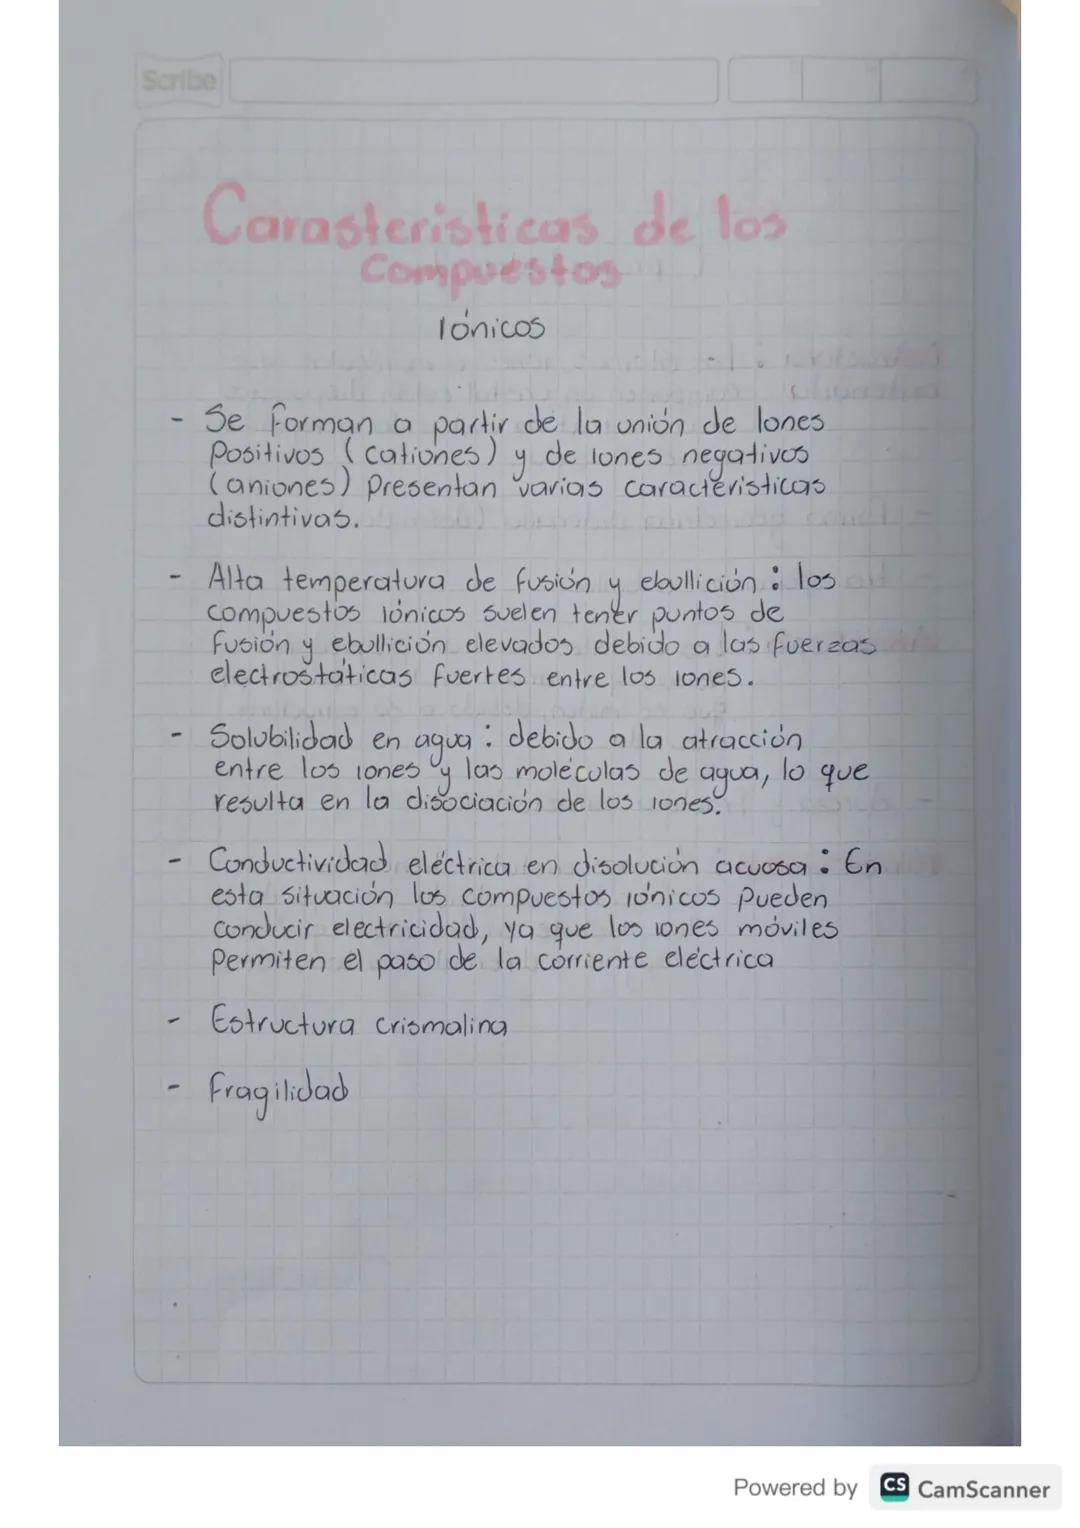 Scribe
Carasteristicas de los
Compuestos
Iónicos
- Se forman a partir de la unión de Iones
Positivos (cationes) y de Iones negativos
(aniones) Presentan varias características
distintivas.
- Alta temperatura de fusión y ebullición : los
compuestos Iónicos suelen tener puntos de
fusión y ebullición elevados debido a las fuerzas
electrostáticas fuertes entre los Iones.
- Solubilidad en agua : debido a la atracción
entre los Iones y las moléculas de agua, lo que
resulta en la disociación de los Iones.
- Conductividad eléctrica en disolución acuosa : En
esta situación los compuestos Iónicos Pueden
conducir electricidad, ya que los Iones móviles
Permiten el paso de la corriente eléctrica
- Estructura crismalina
- Fragilidad
Powered by CS CamScanner